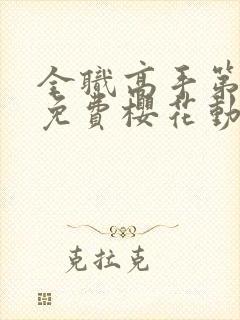 全職高手第
免費櫻花動
克拉克